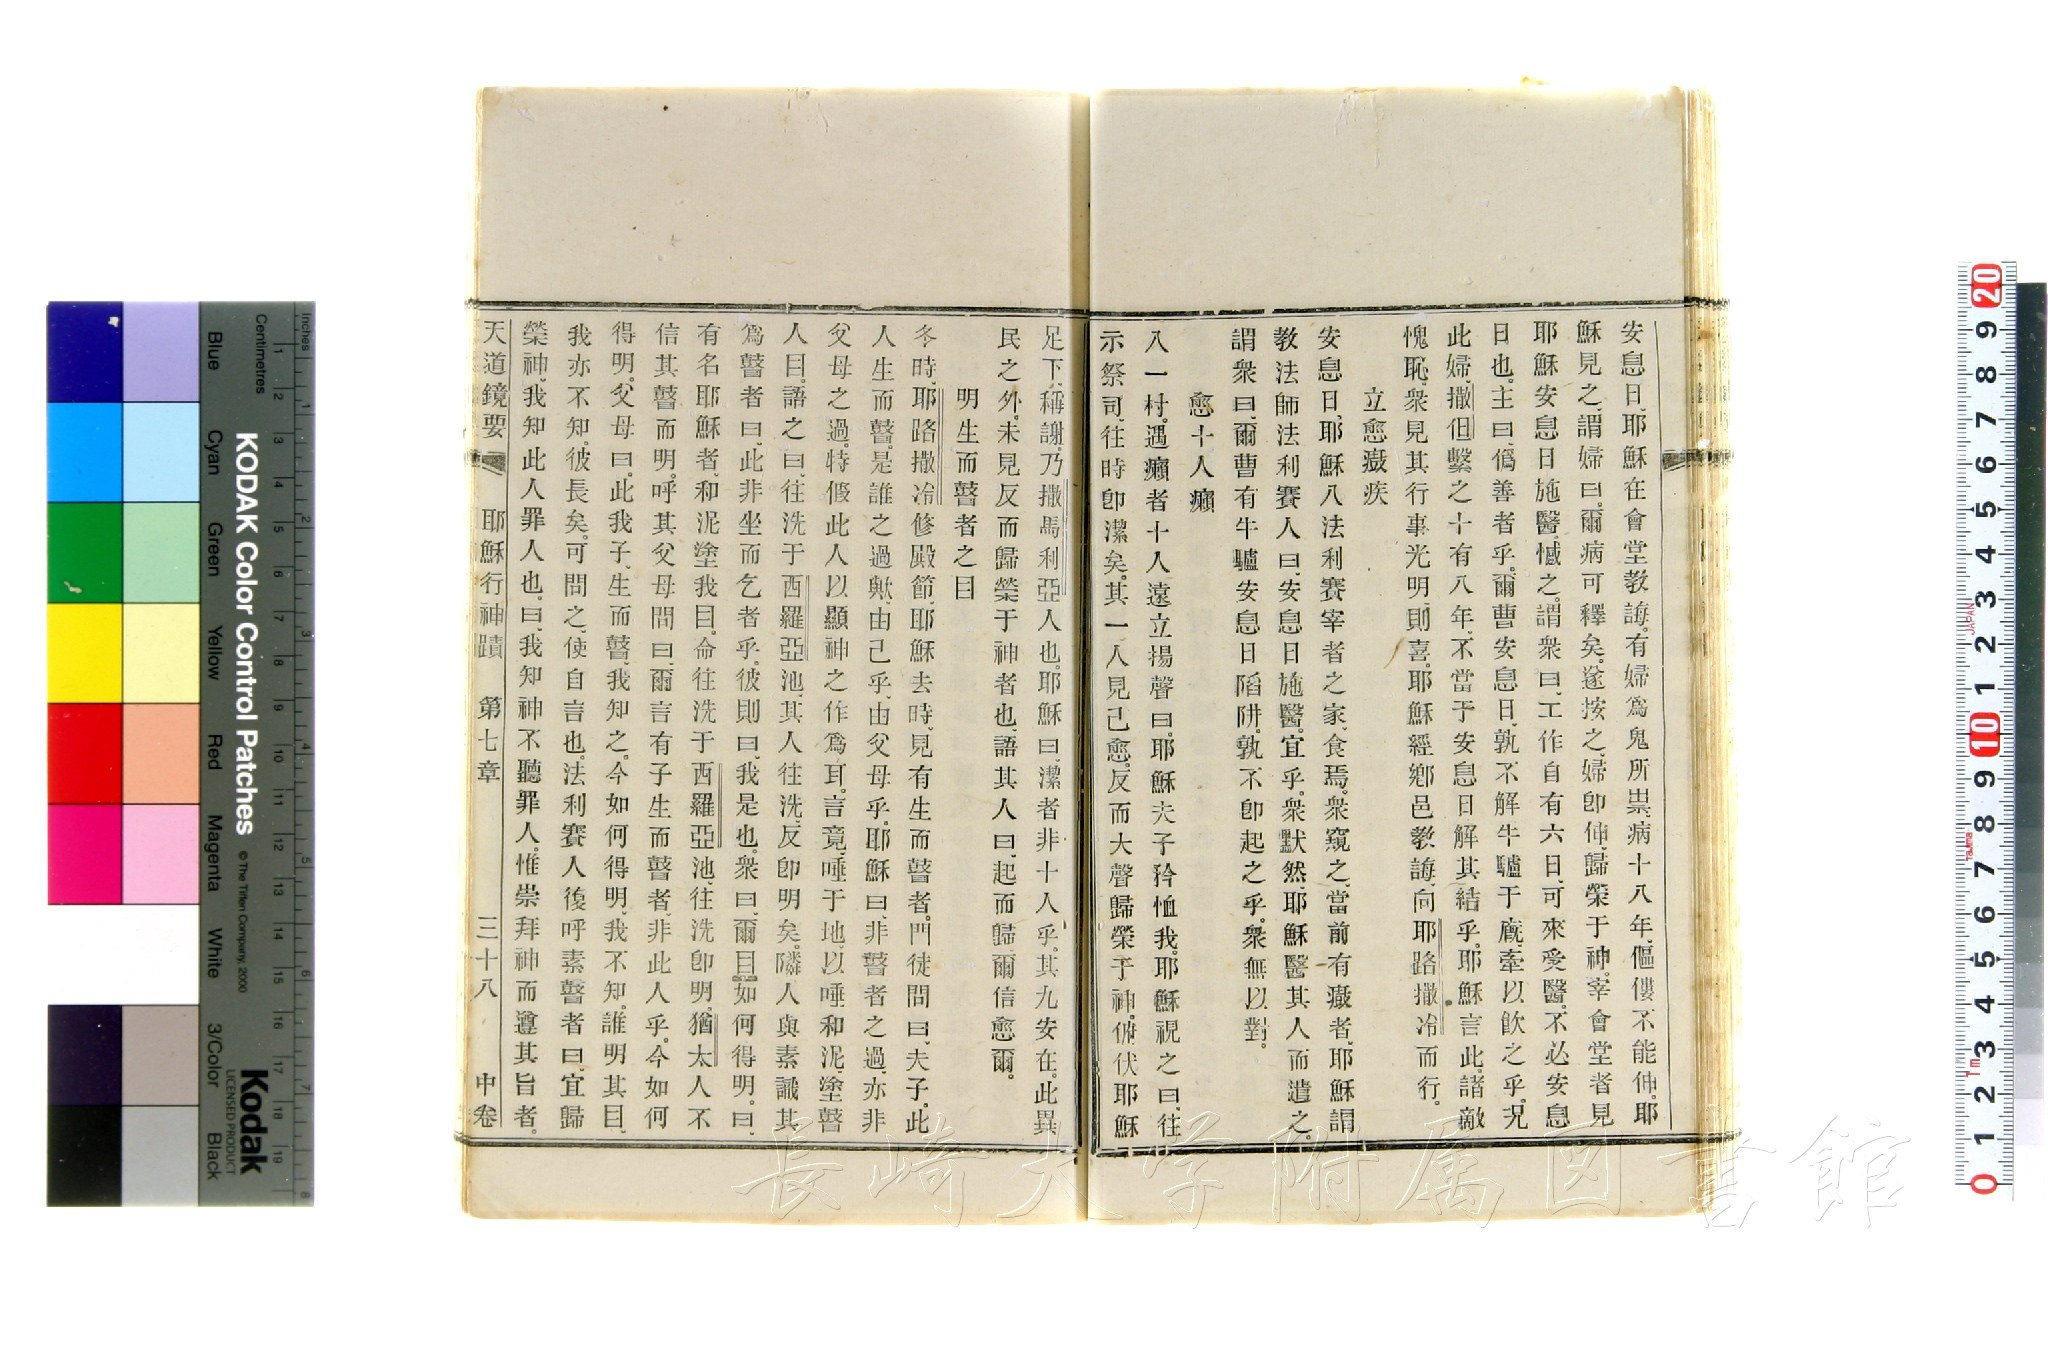 安息日、耶穌在會堂教誨。有婦爲鬼所祟、病十八年、傴僂不能伸。耶
穌見之、謂婦曰、爾病可釋矣。遂按之、婦卽伸、歸榮于神。宰會堂者見
耶穌安息日施醫、憾之。謂衆曰、工作自有六日、可來受醫、不必安息
日也。主曰、僞善者乎。爾曹安息日、孰不解牛驢于廐、牽以飮之乎。况
此婦、撒但繫之十有八年、不當于安息日解其結乎。耶穌言此、諸敵
愧恥、衆見其行事光明、則喜。耶穌經鄉邑教誨、向耶路撒冷而行。
立愈蠱疾
安息日、耶穌入法利賽宰者之家、食焉。衆窺之、當前有蠱者、耶穌謂
教法師法利賽人曰、安息日施醫、宜乎。衆默然、耶穌醫其人而遣之。
謂衆曰、爾曹有牛驢安息日陷阱、孰不卽起之乎。衆無以對。
愈十人癩
入一村。遇癩者十人遠立揚聲曰。耶穌夫子矜恤我。耶穌視之曰、往
示祭司、往時卽潔矣。其一人見己愈、反而大聲歸榮于神。俯伏耶穌
足下、稱謝。乃撒馬利亞人也。耶穌曰、潔者非十人乎。其九安在。此異
民之外、未見反而歸榮于神者也、語其人曰、起而歸、爾信愈爾。
明生而瞽者之目
冬時、耶路撒冷修殿節、耶穌去時、見有生而瞽者。門徒問曰、夫子。此
人生而瞽、是誰之過歟、由己乎、由父母乎。耶穌曰、非瞽者之過、亦非
父母之過。特假此人以顯神之作爲耳。言竟、唾于地、以唾和泥、塗瞽
人目。語之曰、往洗于西羅亞池、其人往洗、反卽明矣。隣人與素識其
爲瞽者曰、此非坐而乞者乎。彼則曰、我是也。衆曰、爾目如何得明。曰、
有名耶穌者、和泥塗我目。命往洗于西羅亞池、往洗卽明。猶太人不
信其瞽而明。呼其父母問曰、爾言有子生而瞽者、非此人乎。今如何
得明。父母曰。此我子、生而瞽、我知之。今如何得明、我不知。誰明其目、
我亦不知。彼長矣。可問之、使自言也。法利賽人復呼素瞽者曰、宜歸
榮神、我知此人罪人也。曰、我知神不聽罪人。惟崇拜神而遵其旨者。
天道鏡要 耶穌行神蹟 第七章 三十八 中卷
長崎大学附属図書館
KODAK Color Control Patches © The Tiffen Company, 2000
Kodak
LICENSED PRODUCT
Inches
Centimetres
Blue Cyan Green Yellow Red Magenta White 3/Color Black